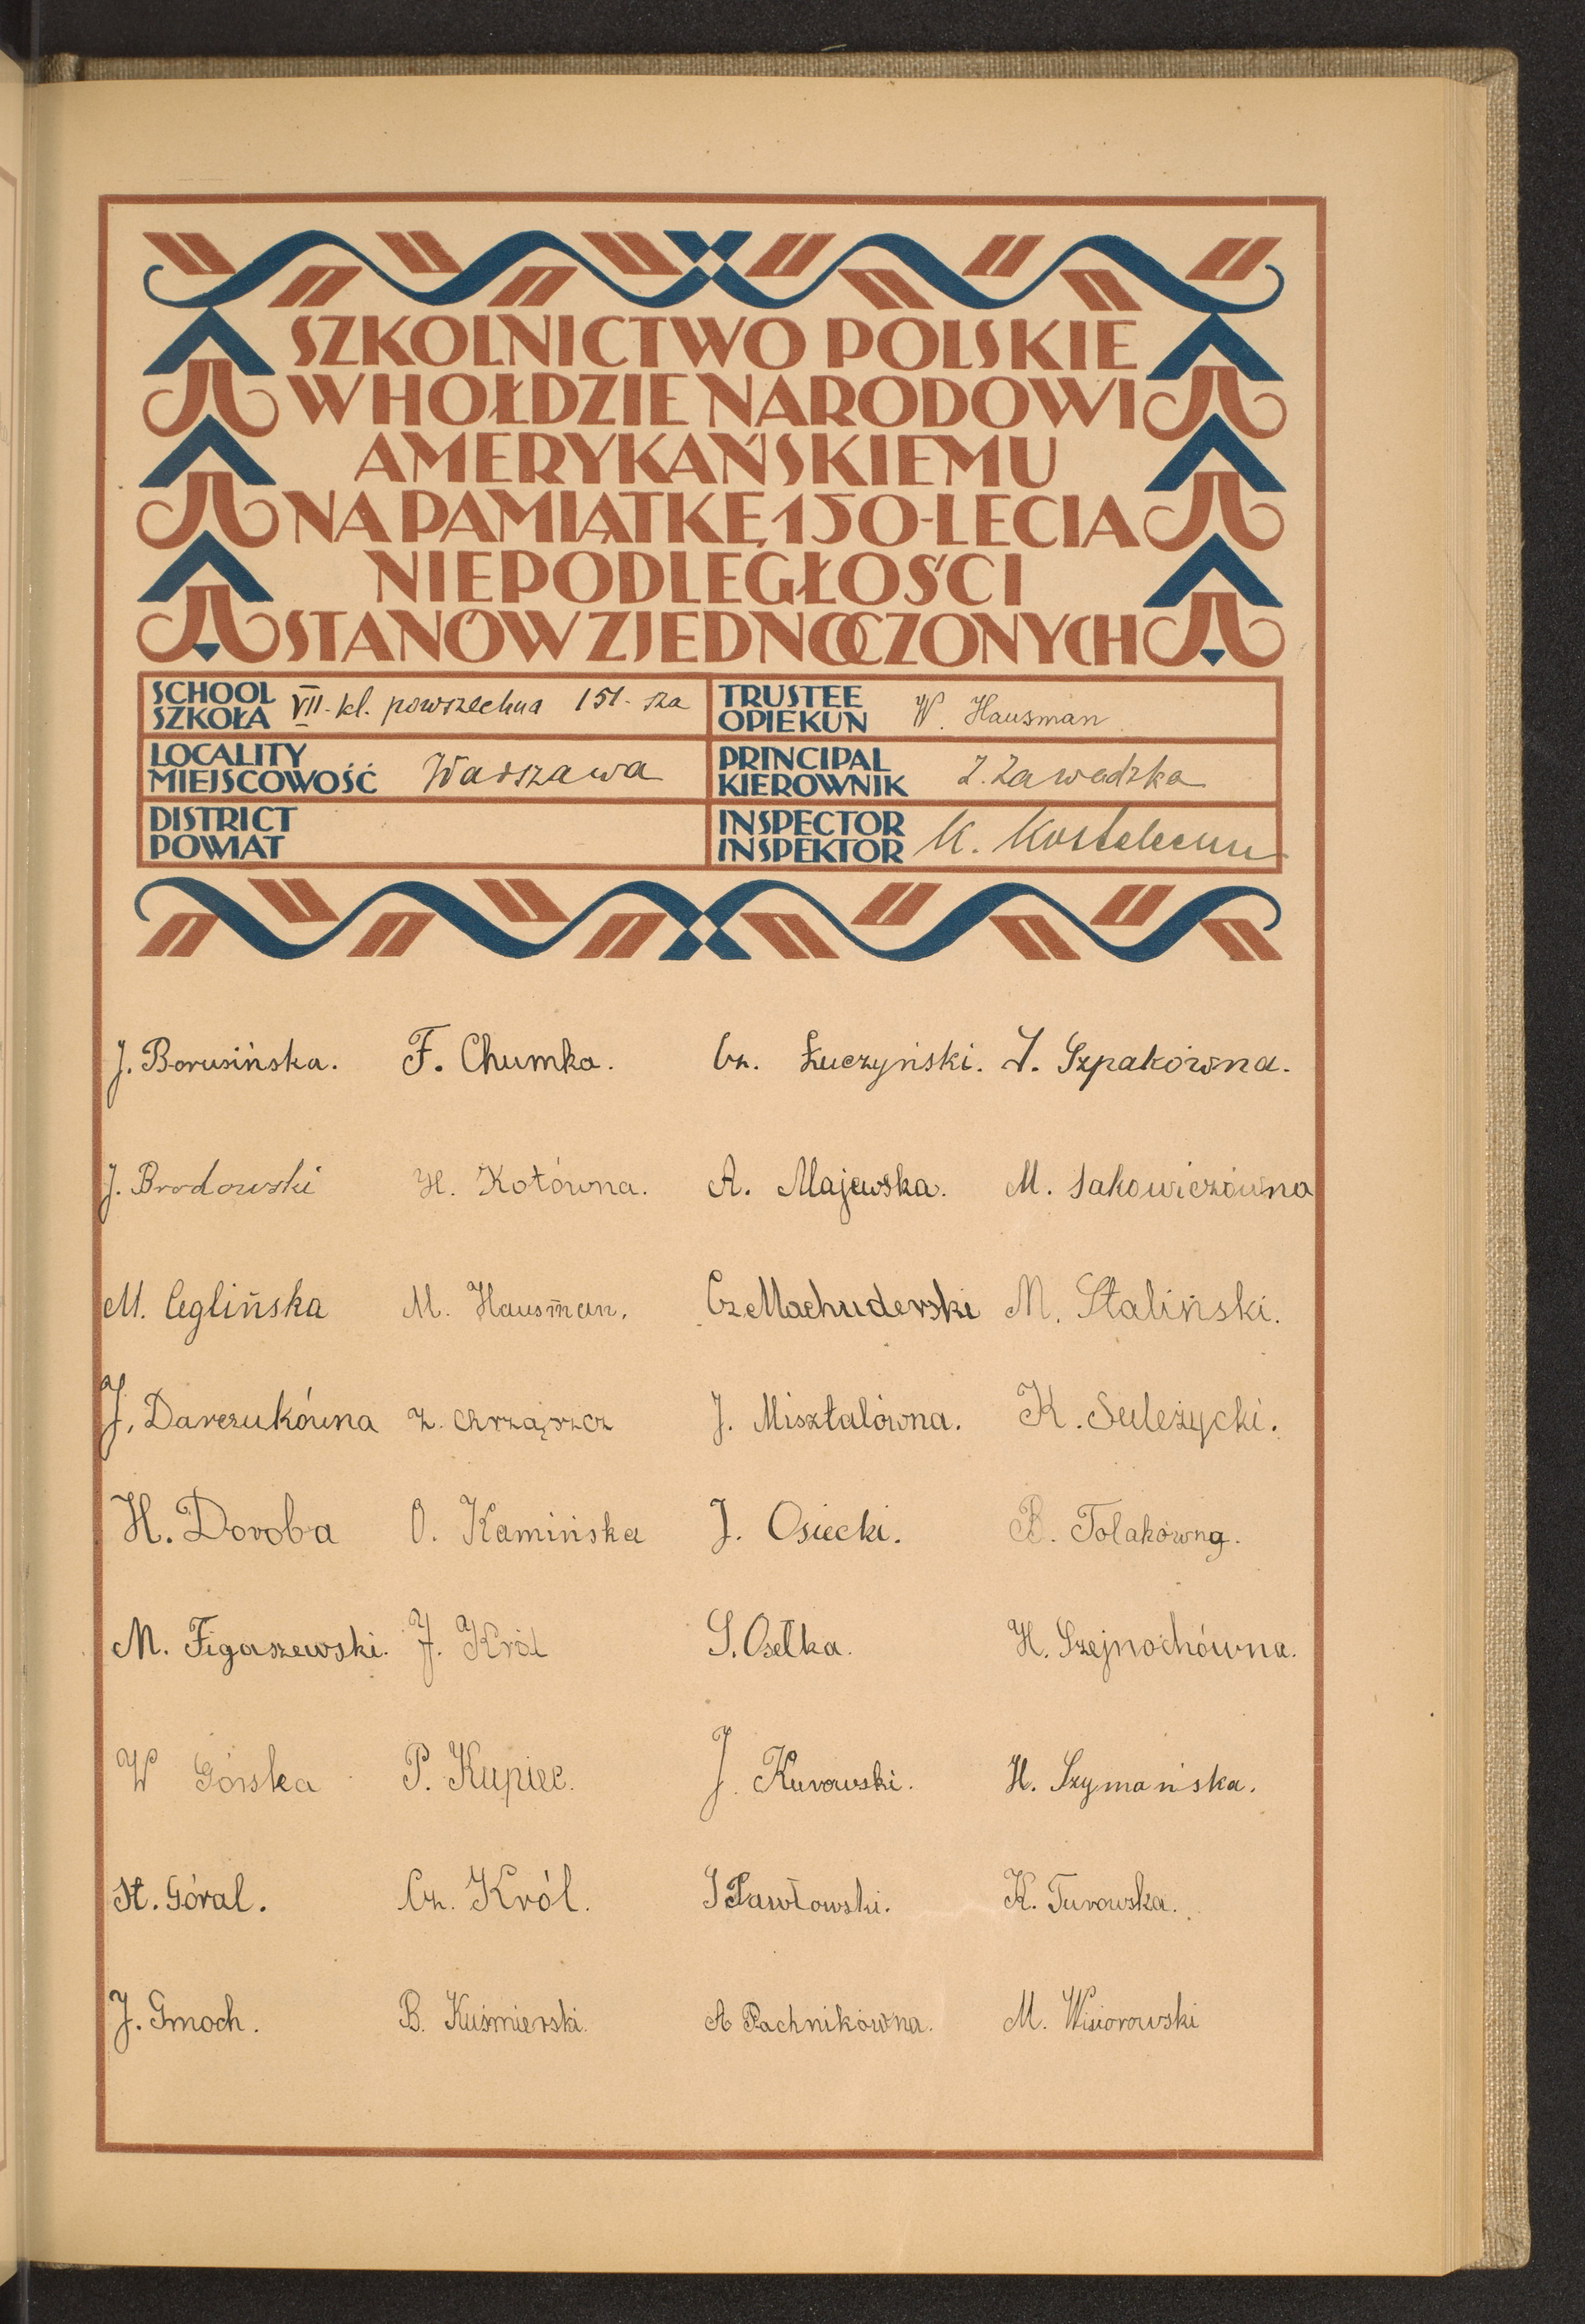 SZKOLNICTWO POLSKIE
W HOŁDZIE NARODOWI
AMERYKAŃSKIEMU
NA PAMIĄTKĘ 150-LECIA
NIEPODLEGŁOŚCI
STANÓW ZJEDNOCZONYCH
SCHOOL SZKOŁA VII-kl. powszechna 151-sza TRUSTEE OPIEKUN W. Hausman
LOCALITY MIEJSCOWOŚĆ Warszawa PRINCIPAL KIEROWNIK Z. Zawadzka
DISTRICT POWIAT INSPECTOR INSPEKTOR K.
J. Borusińska. F. Chumka. Cz. Łuczyński. I. Szpakówna.
J. Brodowski H. Kotówna. A. Majewska. M. Sakowiczówna
M. Ceglińska M. Hausman. Cz Machuderski M. Staliński.
J. Darczukówna Z. Chrząszcz J. Misztalówna. K. Suleżycki.
H. Doroba O. Kamińska J. Osiecki. B. Tolakówna.
M. Figaszewski. J. Król S. Osełka. H. Szejnochówna.
W Górska P. Kupiec. J. Kurowski. H. Szymańska.
St. Góral. Cz. Król. J Pawłowski. K. Turowska.
J. Gmoch. B. Kuśmierski. A Pachnikówna. M. Wisiorowski